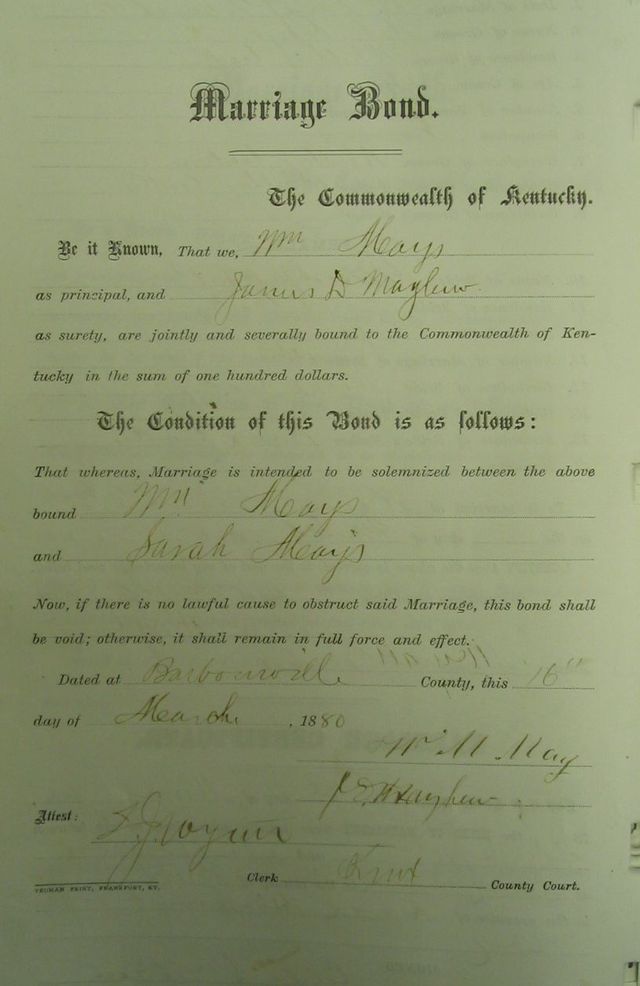 Marriage Bond.
The Commonwealth of Kentucky.
Be it Known, That we, Wm Mays
as principal, and James D Mayhew
as surety, are jointly and severally bound to the Commonwealth of Ken-
tucky in the sum of one hundred dollars.
The Condition of this Bond is as follows:
That whereas, Marriage is intended to be solemnized between the above
bound Wm Mays
and Sarah Mays
Now, if there is no lawful cause to obstruct said Marriage, this bond shall
be void; otherwise, it shall remain in full force and effect.
Dated at Barbourville County, this 16"
day of March, 1880
Wm M. May
Mayhew
Attest:
Clerk Knox County Court.
YEOMAN PRINT, FRANKFORT, KY.